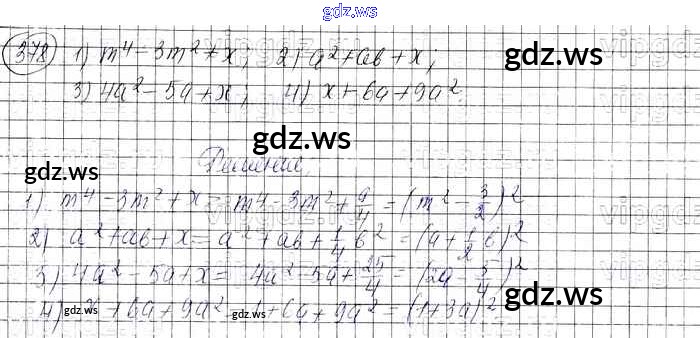 gdz.ws
378 1) m⁴ - 3m² + x; 2) a² + ab + x;
gdz.ws
3) 4a² - 5a + x; 4) x + 6a + 9a².
gdz.ws
Решение.
gdz.ws
1) m⁴ - 3m² + x = m⁴ - 3m² + 9/4 = (m² - 3/2)²
2) a² + ab + x = a² + ab + 1/4 b² = (a + 1/2 b)²
3) 4a² - 5a + x = 4a² - 5a + 25/4 = (2a - 5/4)²
gdz.ws
4) x + 6a + 9a² = 1 + 6a + 9a² = (1 + 3a)²
gdz.ws gdz.ws